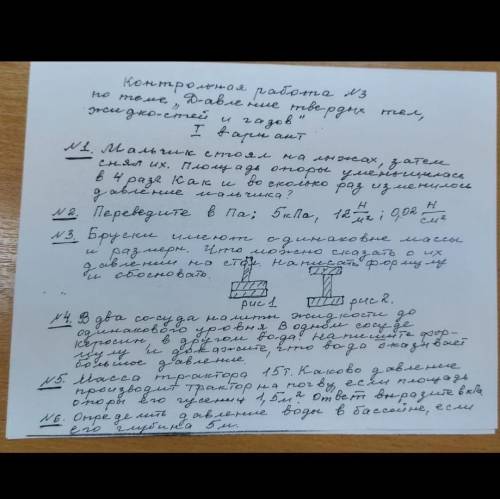 Контрольная работа №3
по теме „Давление твердых тел,
жидкостей и газов"
I вариант
№1. Мальчик стоял на лыжах, затем
снял их. Площадь опоры уменьшилась
в 4 раза. Как и во сколько раз изменилось
давление мальчика?
№2. Переведите в Па: 5кПа, 12 Н/м²; 0,02 Н/см²
№3. Бруски имеют одинаковые массы
и размеры. Что можно сказать о их
давлении на стол. Написать формулу
и обосновать.
рис 1 рис 2.
№4. В два сосуда налиты жидкости до
одинакового уровня. В одном сосуде
керосин, в другом вода. Напишите фор-
мулу и докажите, что вода оказывает
большее давление
№5. Масса трактора 15т. Каково давление
производит трактор на почву, если площадь
опоры его гусениц 1,5м². Ответ выразите в кПа
№6. Определить давление воды в бассейне, если
его глубина 5м.